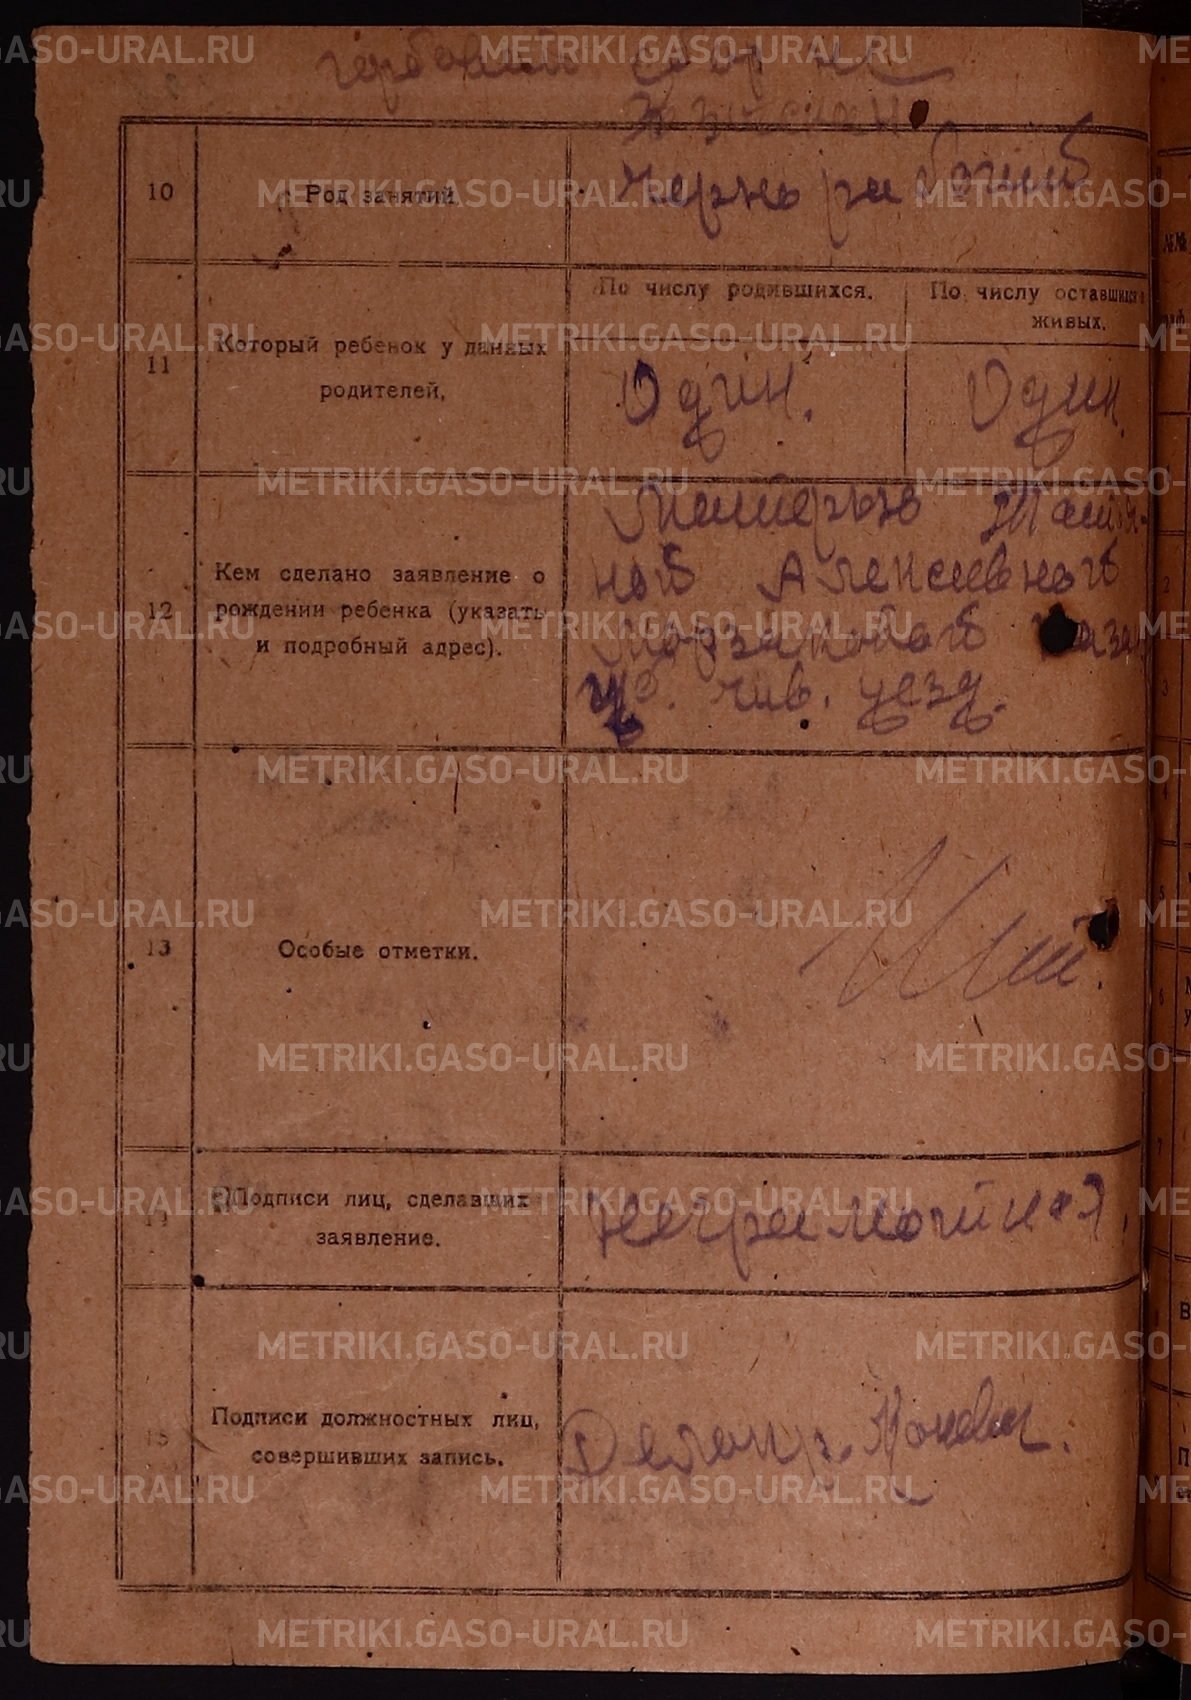 гербовый сбор
взыскан
10 Род занятий. Чернорабочий
11 Который ребенок у данных родителей,
По числу родившихся. По числу оставшихся живых.
Один. Один.
12 Кем сделано заявление о рождении ребенка (указать и подробный адрес).
Матерью
ной Алексеевной
уезд.
13 Особые отметки.
14 Подписи лиц, сделавших заявление. Неграмотная.
15 Подписи должностных лиц, совершивших запись. Делопр.
METRIKI.GASO-URAL.RU